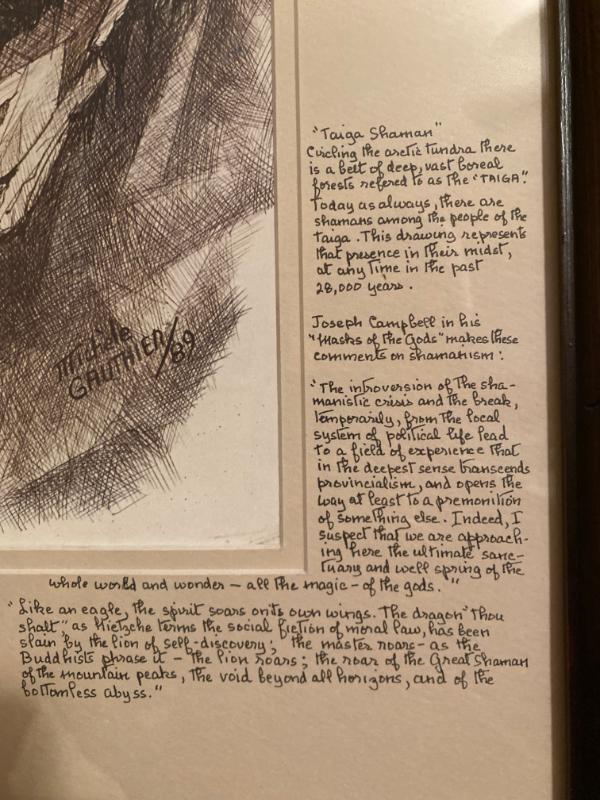 "Taiga Shaman"
Circling the arctic tundra there
is a belt of deep, vast boreal
forests refered to as the "TAIGA".
Today as always, there are
shamans among the people of the
taiga. This drawing represents
that presence in their midst,
at any time in the past
28,000 years.
Joseph Campbell in his
"Masks of the Gods" makes these
comments on shamanism:
"The introversion of the sha-
manistic crisis and the break,
temporarily, from the local
system of political life lead
to a field of experience that
in the deepest sense transcends
provincialism, and opens the
way at least to a premonition
of something else. Indeed, I
suspect that we are approach-
ing here the ultimate sanc-
tuary and well spring of the
whole world and wonder - all the magic - of the gods."
"Like an eagle, the spirit soars on its own wings. The dragon "Thou
shalt" as Nietzche terms the social fiction of moral law, has been
slain by the lion of self-discovery; the master roars - as the
Buddhists phrase it - the lion roars; the roar of the Great Shaman
of the mountain peaks, the void beyond all horizons, and of the
bottomless abyss."
GAUTHIER/89